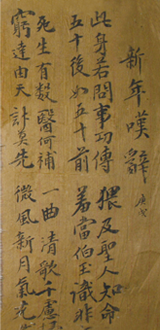 新年嘆辭 庚戌
此身若問事功傳 猥及聖人知命
五十後如五十前 羞當伯玉識非
死生有數醫何補 一曲清歌千慮
窮達由天計莫先 微風新月氣